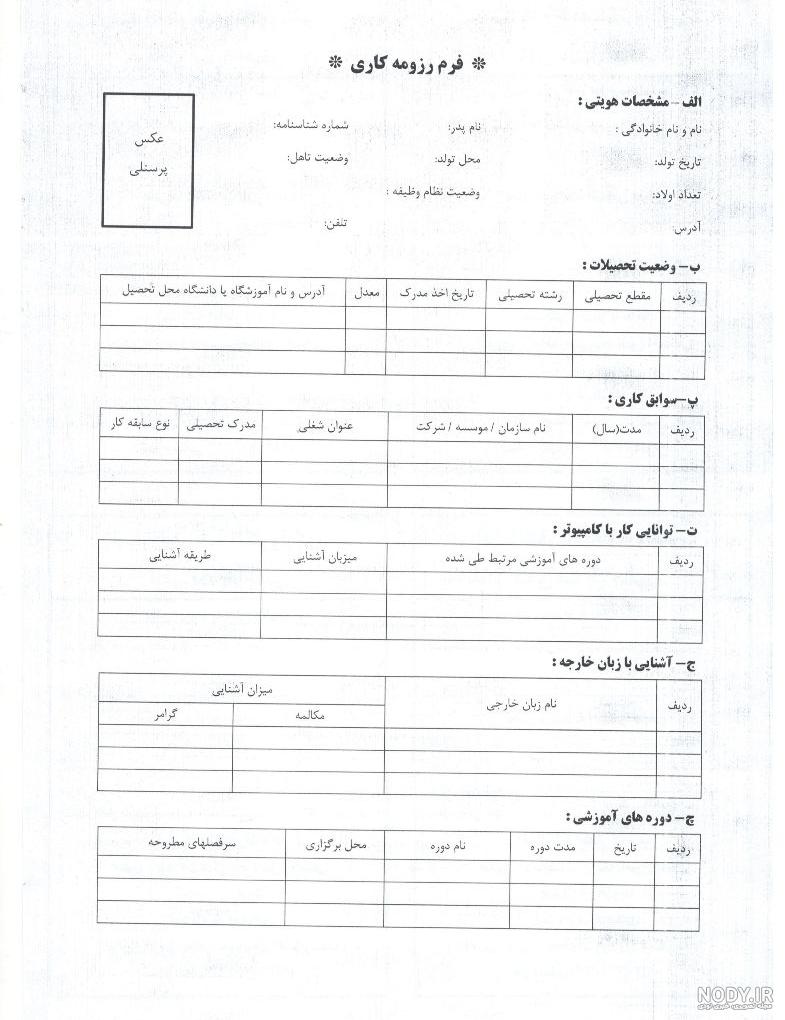 ❊ فرم رزومه کاری ❊
الف – مشخصات هویتی :
نام و نام خانوادگی : نام پدر: شماره شناسنامه:
تاریخ تولد: محل تولد: وضعیت تاهل:
تعداد اولاد: وضعیت نظام وظیفه :
آدرس: تلفن:
عکس
پرسنلی
ب – وضعیت تحصیلات :
ردیف مقطع تحصیلی رشته تحصیلی تاریخ اخذ مدرک معدل آدرس و نام آموزشگاه یا دانشگاه محل تحصیل
پ – سوابق کاری :
ردیف مدت(سال) نام سازمان / موسسه / شرکت عنوان شغلی مدرک تحصیلی نوع سابقه کار
ت – توانایی کار با کامپیوتر :
ردیف دوره های آموزشی مرتبط طی شده میزبان آشنایی طریقه آشنایی
ج – آشنایی با زبان خارجه :
ردیف نام زبان خارجی میزان آشنایی
مکالمه گرامر
چ – دوره های آموزشی :
ردیف تاریخ مدت دوره نام دوره محل برگزاری سرفصلهای مطروحه
NODY.IR